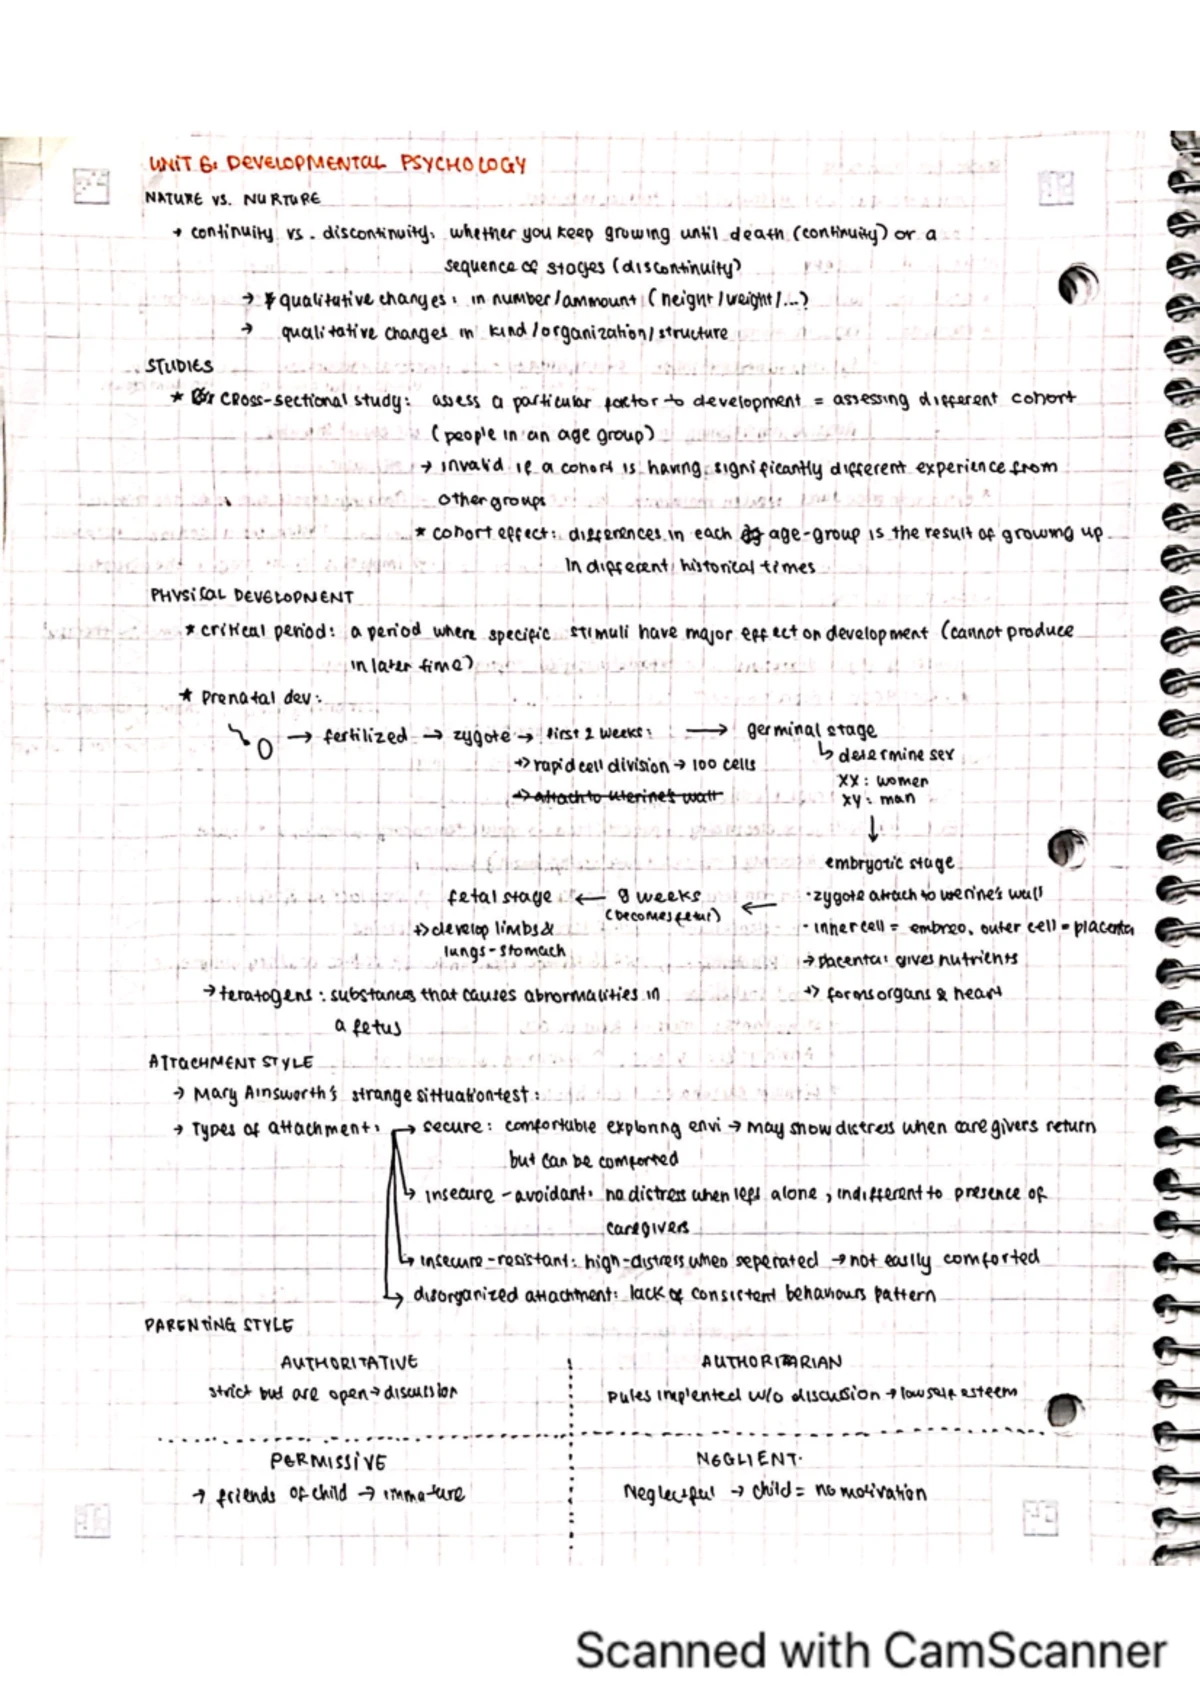 UNIT 6: DEVELOPMENTAL PSYCHOLOGY
NATURE VS. NURTURE
→ continuity vs. discontinuity: whether you keep growing until death (continuity) or a
sequence of stages (discontinuity)
→ qualitative changes: in number/ammount (height/weight/...)
→ qualitative changes in kind/organization/structure
STUDIES
* cross-sectional study: assess a particular factor to development = assessing different cohort
(people in an age group)
→ invalid if a cohort is having significantly different experience from
other groups
* cohort effect: differences in each age-group is the result of growing up
in different historical times
PHYSICAL DEVELOPMENT
* critical period: a period where specific stimuli have major effect on development (cannot produce
in later time)
* Prenatal dev:
→ fertilized → zygote → first 2 weeks: → germinal stage
↳ determine sex
→ rapid cell division → 100 cells
XX: women
→ attach to uterine's wall
XY: man
↓
embryotic stage
fetal stage ← 8 weeks ← · zygote attach to uterine's wall
(becomes fetus)
→ develop limbs &
· inner cell = embreo, outer cell = placenta
lungs - stomach
→ placenta: gives nutrients
→ teratogens: substances that causes abnormalities in
→ forms organs & heart
a fetus
ATTACHMENT STYLE
→ Mary Ainsworth's strange sittuation test:
→ Types of attachment: → secure: comfortable exploring envi → may show distress when care givers return
but can be comforted
↳ insecure - avoidant: no distress when left alone, indifferent to presence of
caregivers
↳ insecure - resistant: high-distress when seperated → not easily comforted
↳ disorganized attachment: lack of consistent behaviours pattern
PARENTING STYLE
AUTHORITATIVE AUTHORITARIAN
strict but are open → discussion rules implented w/o discussion → low self esteem
PERMISSIVE NEGLIENT
→ friends of child → immature Neglectful → child = no motivation
Scanned with CamScanner